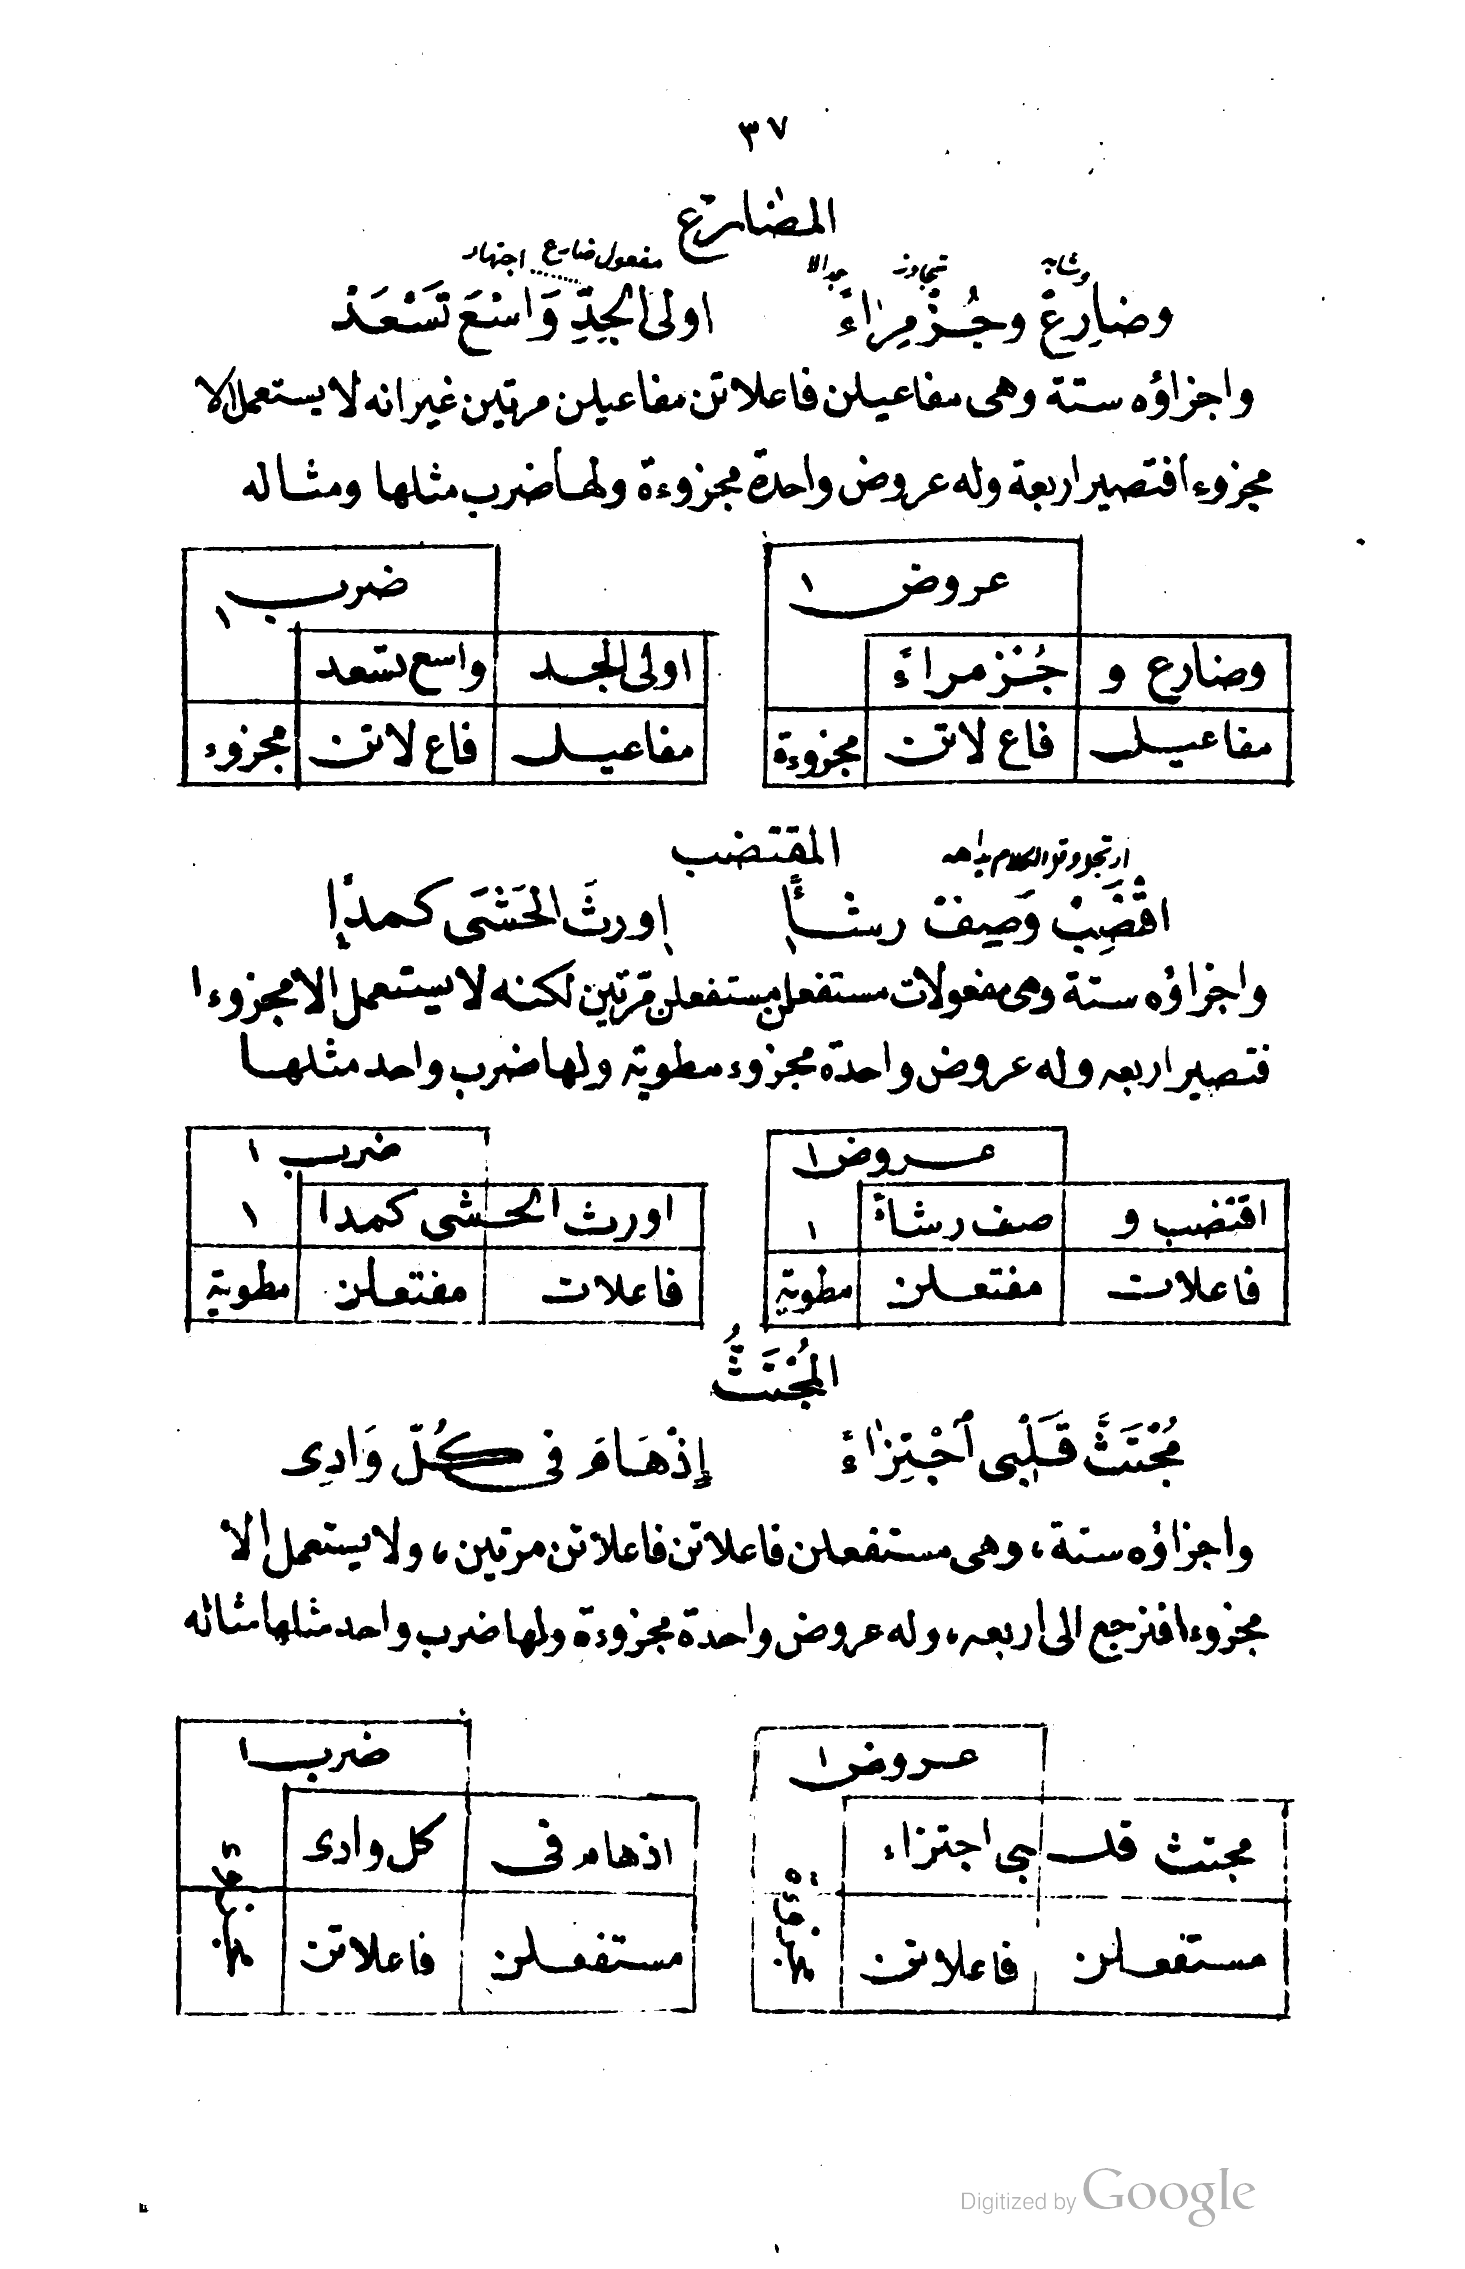 ٣٧
المضارع
وشابه تجاوز جدالا مفعول ضارع اجتهاد
وضَارِعْ وجُزْ مِرَاءً اولى الجِدِّ وَاسْعَ تَسْعَدْ
واجزاؤه ستة وهى مفاعيلن فاعلاتن مفاعيلن مرتين غير انه لا يستعمل الا
مجزوءا فتصير اربعة وله عروض واحدة مجزوءة ولها ضرب مثلها ومثاله
عروض ١ ضرب ١
وضارع و جُزْ مراءً اولى الجد واسع تسعد
مفاعيل فاع لاتن مجزوءة مفاعيل فاع لاتن مجزوء
المقتضب
ارتجل وقل الكلام بداهه
اقْتَضِبْ وَصِفْ رشأً اورثَ الحَشَى كمدًا
واجزاؤه ستة وهى مفعولات مستفعلن مستفعلن مرتين لكنه لا يستعمل الا مجزوءا
فتصير اربعه وله عروض واحدة مجزوء مطوية ولها ضرب واحد مثلها
عروض ١ ضرب ١
اقتضب و صف رشاءً ١ اورث الحشى كمدا ١
فاعلات مفتعلن مطوية فاعلات مفتعلن مطوية
المُجْتَثُّ
مُجْتَثَّ قَلْبِى اَجْتِزَاءً إِذْهَامَ فى كُلّ وَادِى
واجزاؤه ستة، وهى مستفعلن فاعلاتن فاعلاتن مرتين، ولا يستعمل الا
مجزوءا فترجع الى اربعه، وله عروض واحدة مجزوءة ولها ضرب واحد مثلها مثاله
عروض ١ ضرب ١
مجتث قلـ ـبى اجتزاء اذهام فى كل وادى
مستفعلن فاعلاتن مجزوءة مستفعلن فاعلاتن
Digitized by Google